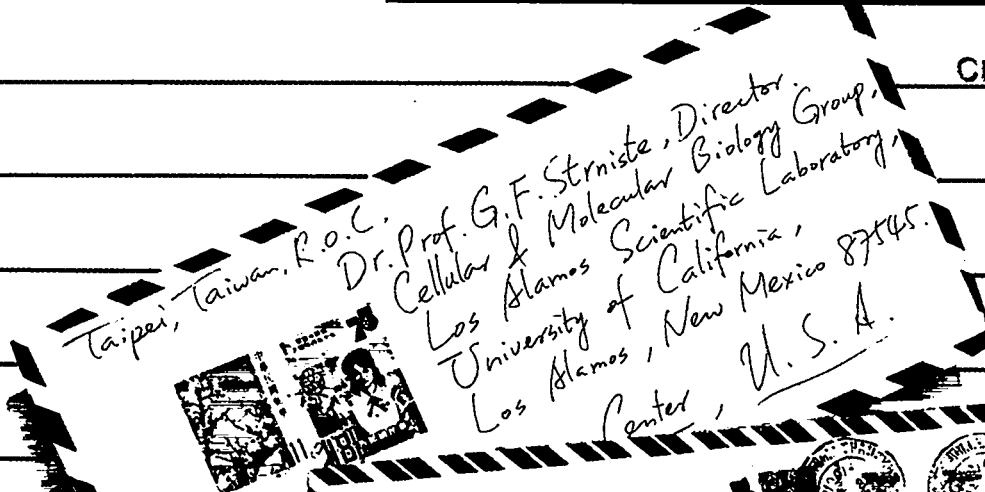 Taipei, Taiwan, R.O.C.
Dr. Prof. G.F. Strniste, Director.
Cellular & Molecular Biology Group,
Los Alamos Scientific Laboratory,
University of California,
Los Alamos, New Mexico 87545.
Center, U.S.A.